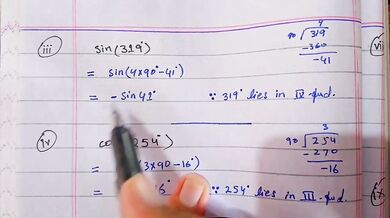 iii) sin(319°)
= sin(4x90-41°)
= -sin41° ∵ 319° lies in IV quad.
4
90 √319
-360
-41
iv) 254°)
3x90-16°)
= 6° ∵ 254° lies in III quad.
3
90 √254
-270
-16